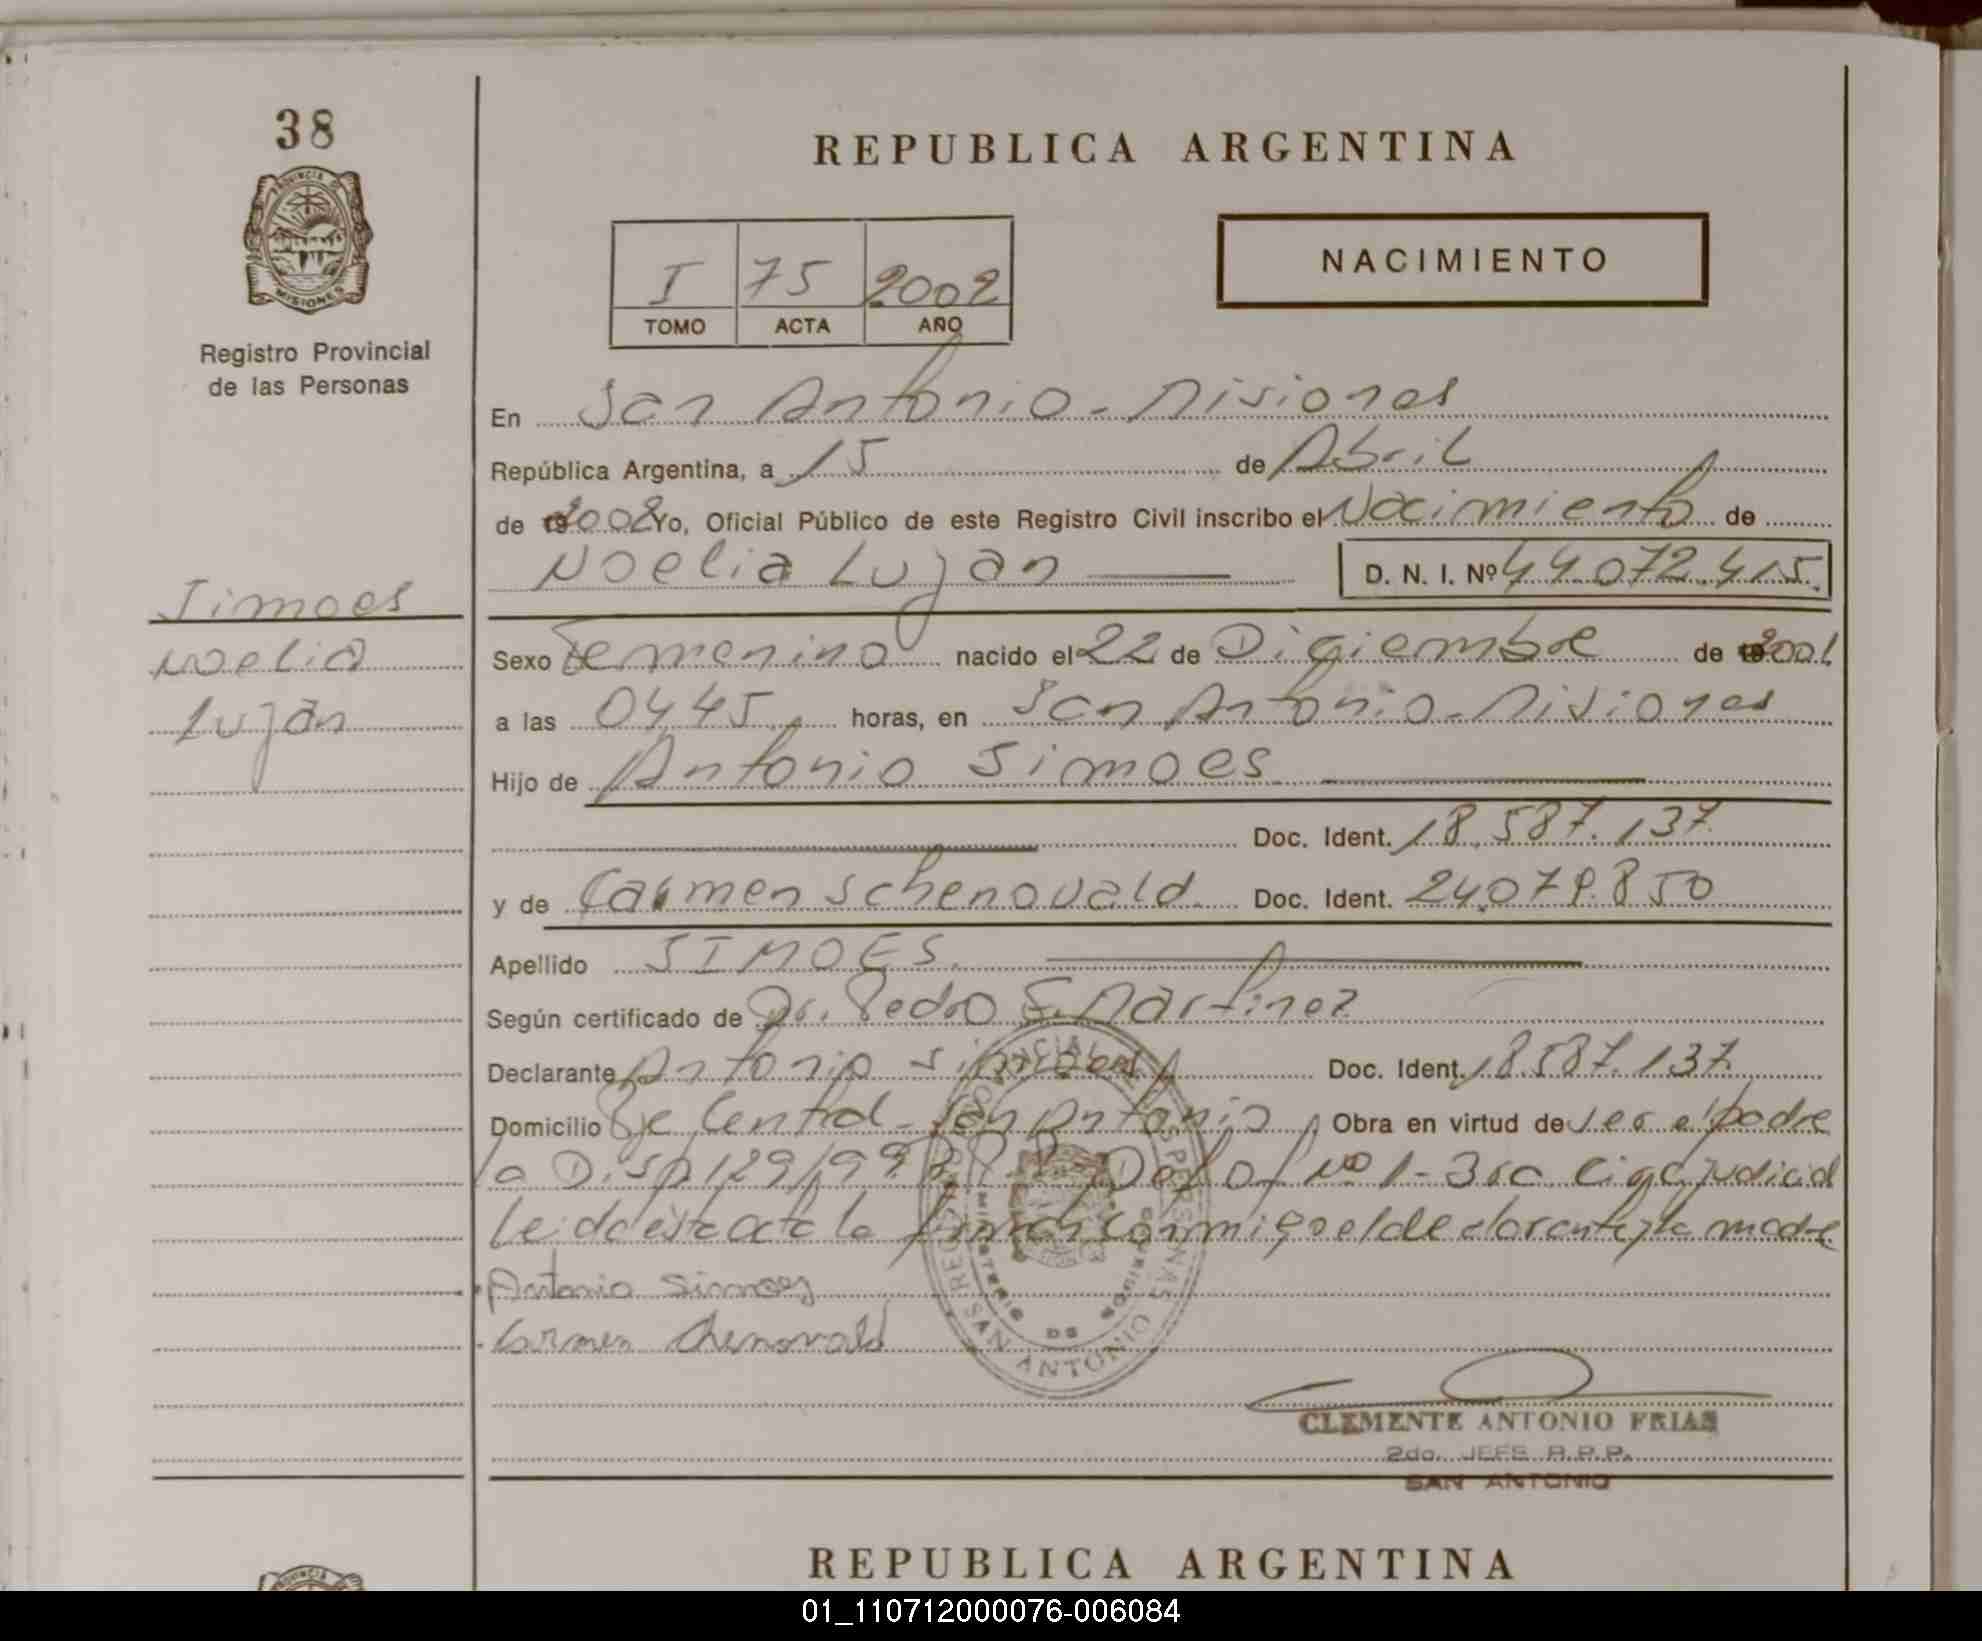 38
REPUBLICA ARGENTINA
PROVINCIA DE
MISIONES
Registro Provincial
de las Personas
I 75 2002
TOMO ACTA AÑO
NACIMIENTO
En San Antonio - Misiones
República Argentina, a 15 de Abril
de 2002 Yo, Oficial Público de este Registro Civil inscribo el Nacimiento de
Noelia Lujan D. N. I. Nº 44.072.415.
Simoes
Noelia
Luján
Sexo Femenino nacido el 22 de Diciembre de 2001
a las 0445 horas, en San Antonio - Misiones
Hijo de Antonio Simoes
Doc. Ident. 18.587.137
y de Carmen Schenovald Doc. Ident. 24.079.850
Apellido SIMOES.
Según certificado de Dr. Pedro E. Martinez
Declarante Antonio Simoes Doc. Ident. 18.587.137
Domicilio Central - San Antonio Obra en virtud de ser el padre
Disp 129/99 Del Of Nº 1 - judicial
Leida esta acta la firman conmigo el declarante y la madre
Antonio Simoes
Carmen Chenovald
SAN ANTONIO
MINISTERIO DE GOBIERNO
CLEMENTE ANTONIO FRIAS
2do. JEFE R.P.P.
SAN ANTONIO
REPUBLICA ARGENTINA
PROVINCIA
01_110712000076-006084